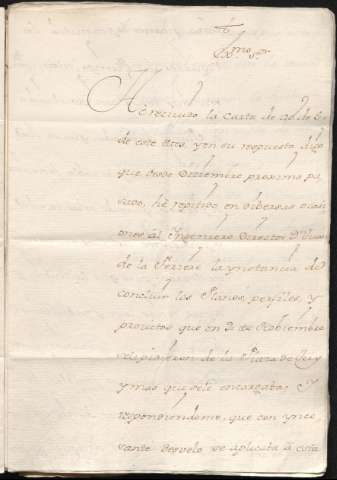 Exmo Sr.
He recivido la Carta de
de este Mes, y en su respuesta digo
que desde Diziembre proximo pa
sado, hè repetido en diversas ocasi
ones al Ingeniero Director Dn Juan
de la Ferriere la ynstancia de
concluir los Planos, perfiles, y
proiectos que en 21 de Nobiembre
de la Plaza de
y mas que se le encargaba; Y
respondiendome, que con ynce
sante desvelo se aplicaba à esta